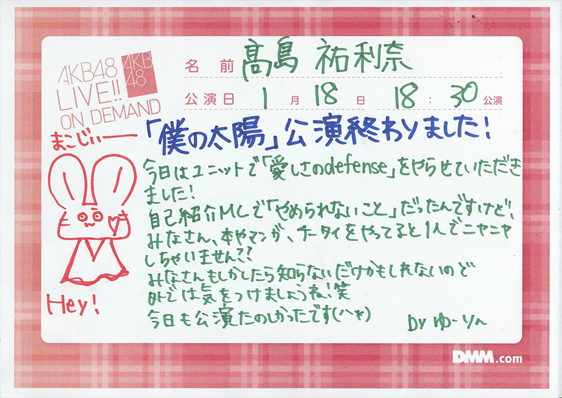 AKB48
LIVE!!
ON DEMAND
AKB
48
名前 髙島 祐利奈
公演日 1月18日 18:30公演
まこじぃー
「僕の太陽」公演終わりました!
今日はユニットで「愛しさのdefense」をやらせていただき
ました!
自己紹介MCで「やめられないこと」だったんですけど、
みなさん、本やマンガ、ケータイをやってると1人でニヤニヤ
しちゃいません??
みなさんもしかしたら知らないだけかもしれないので
外では気をつけましょうね!笑
今日も公演たのしかったです
Hey!
by ゆーりん
DMM.com